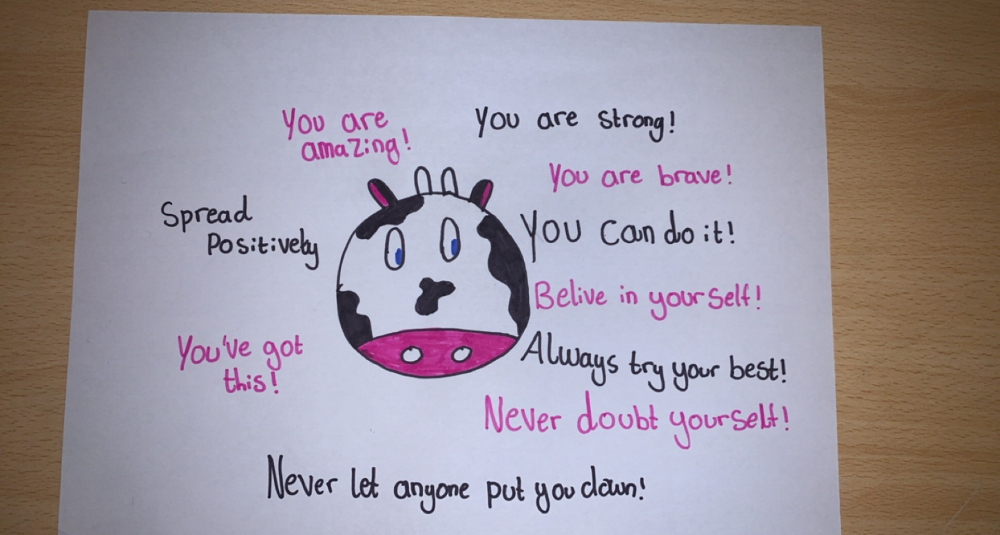 You are
amazing!
You are strong!
You are brave!
Spread
Positively
You can do it!
Belive in yourself!
You've got
this!
Always try your best!
Never doubt yourself!
Never let anyone put you down!